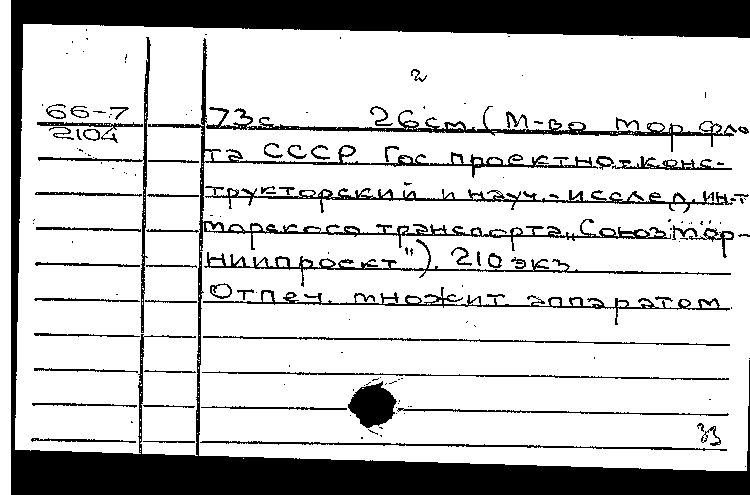 2
66-7
2104
73с. 26см. (М-во мор. фло-
та СССР. Гос. проектно-конс-
трукторский и науч.-исслед. ин-т
морского транспорта „Союзмор-
ниипроект"). 210 экз.
Отпеч. множит. аппаратом
33